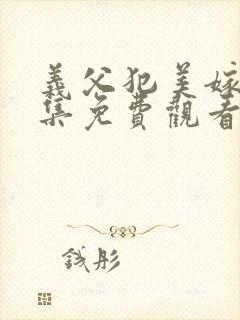 義父犯美嫁
集免費觀看
錢彤